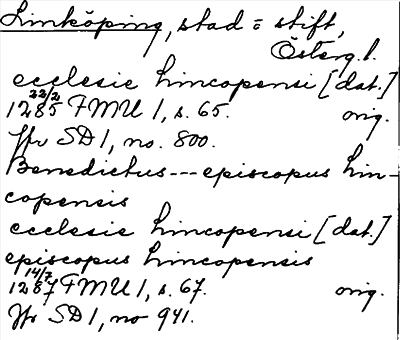 Linköping, stad o stift,
Österg.l.
ecclesie Lincopensi [dat.]
22/2
1285 FMU 1, s. 65. orig.
Jfr SD 1, no. 800.
Benedictus --- episcopus Lin-
copensis
ecclesie Lincopensi [dat.]
episcopus Lincopensis
14/7
1287 FMU 1, s. 67. orig.
Jfr SD 1, no 941.